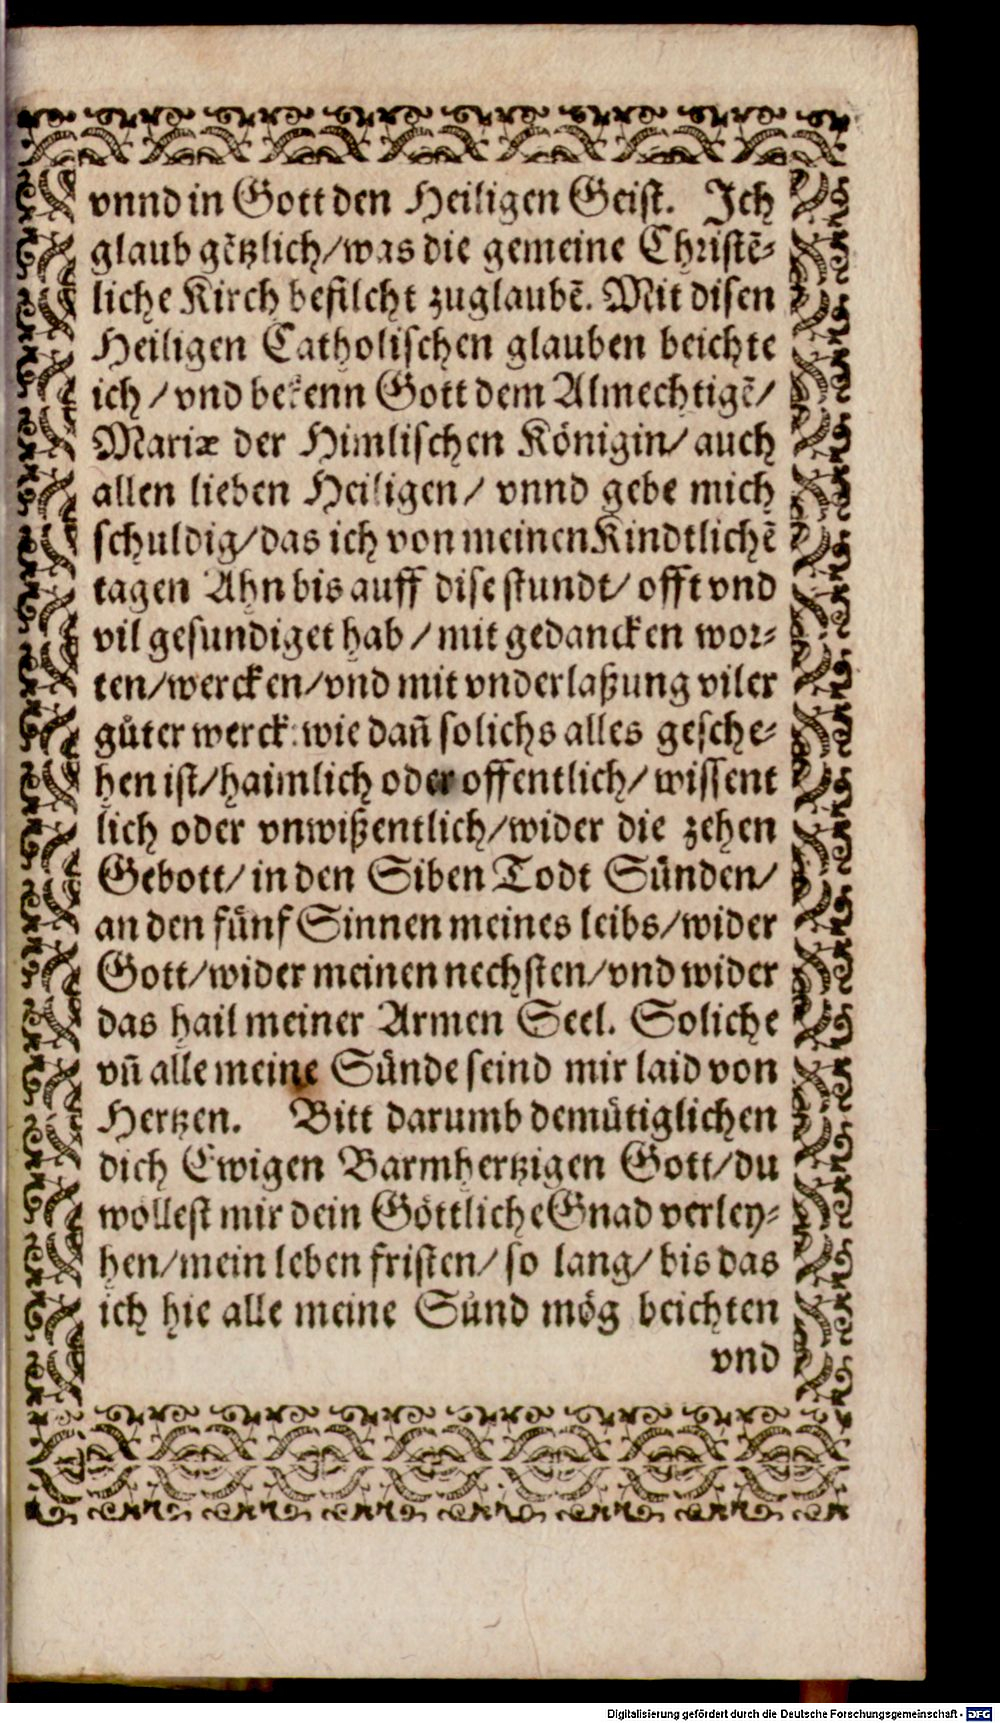 vnnd in Gott den Heiligen Geist. Ich
glaub gẽtzlich/was die gemeine Christẽ-
liche Kirch befilcht zuglaubẽ. Mit disen
Heiligen Catholischen glauben beichte
ich/vnd bekenn Gott dem Almechtigẽ/
Mariæ der Himlischen Königin/auch
allen lieben Heiligen/vnnd gebe mich
schuldig/das ich von meinen Kindtlichẽ
tagen Ahn bis auff dise stundt/offt vnd
vil gesundiget hab/mit gedancken wor-
ten/wercken/vnd mit vnderlaßung viler
gůter werck: wie dañ solichs alles gesche-
hen ist/haimlich oder offentlich/wissent
lich oder vnwißentlich/wider die zehen
Gebott/in den Siben Todt Sünden/
an den fünf Sinnen meines leibs/wider
Gott/wider meinen nechsten/vnd wider
das hail meiner Armen Seel. Soliche
vñ alle meine Sünde seind mir laid von
Hertzen. Bitt darumb demütiglichen
dich Ewigen Barmhertzigen Gott/du
wöllest mir dein Göttliche Gnad verley-
hen/mein leben fristen/so lang/bis das
ich hie alle meine Sünd mög beichten
vnd
Digitalisierung gefördert durch die Deutsche Forschungsgemeinschaft - DFG